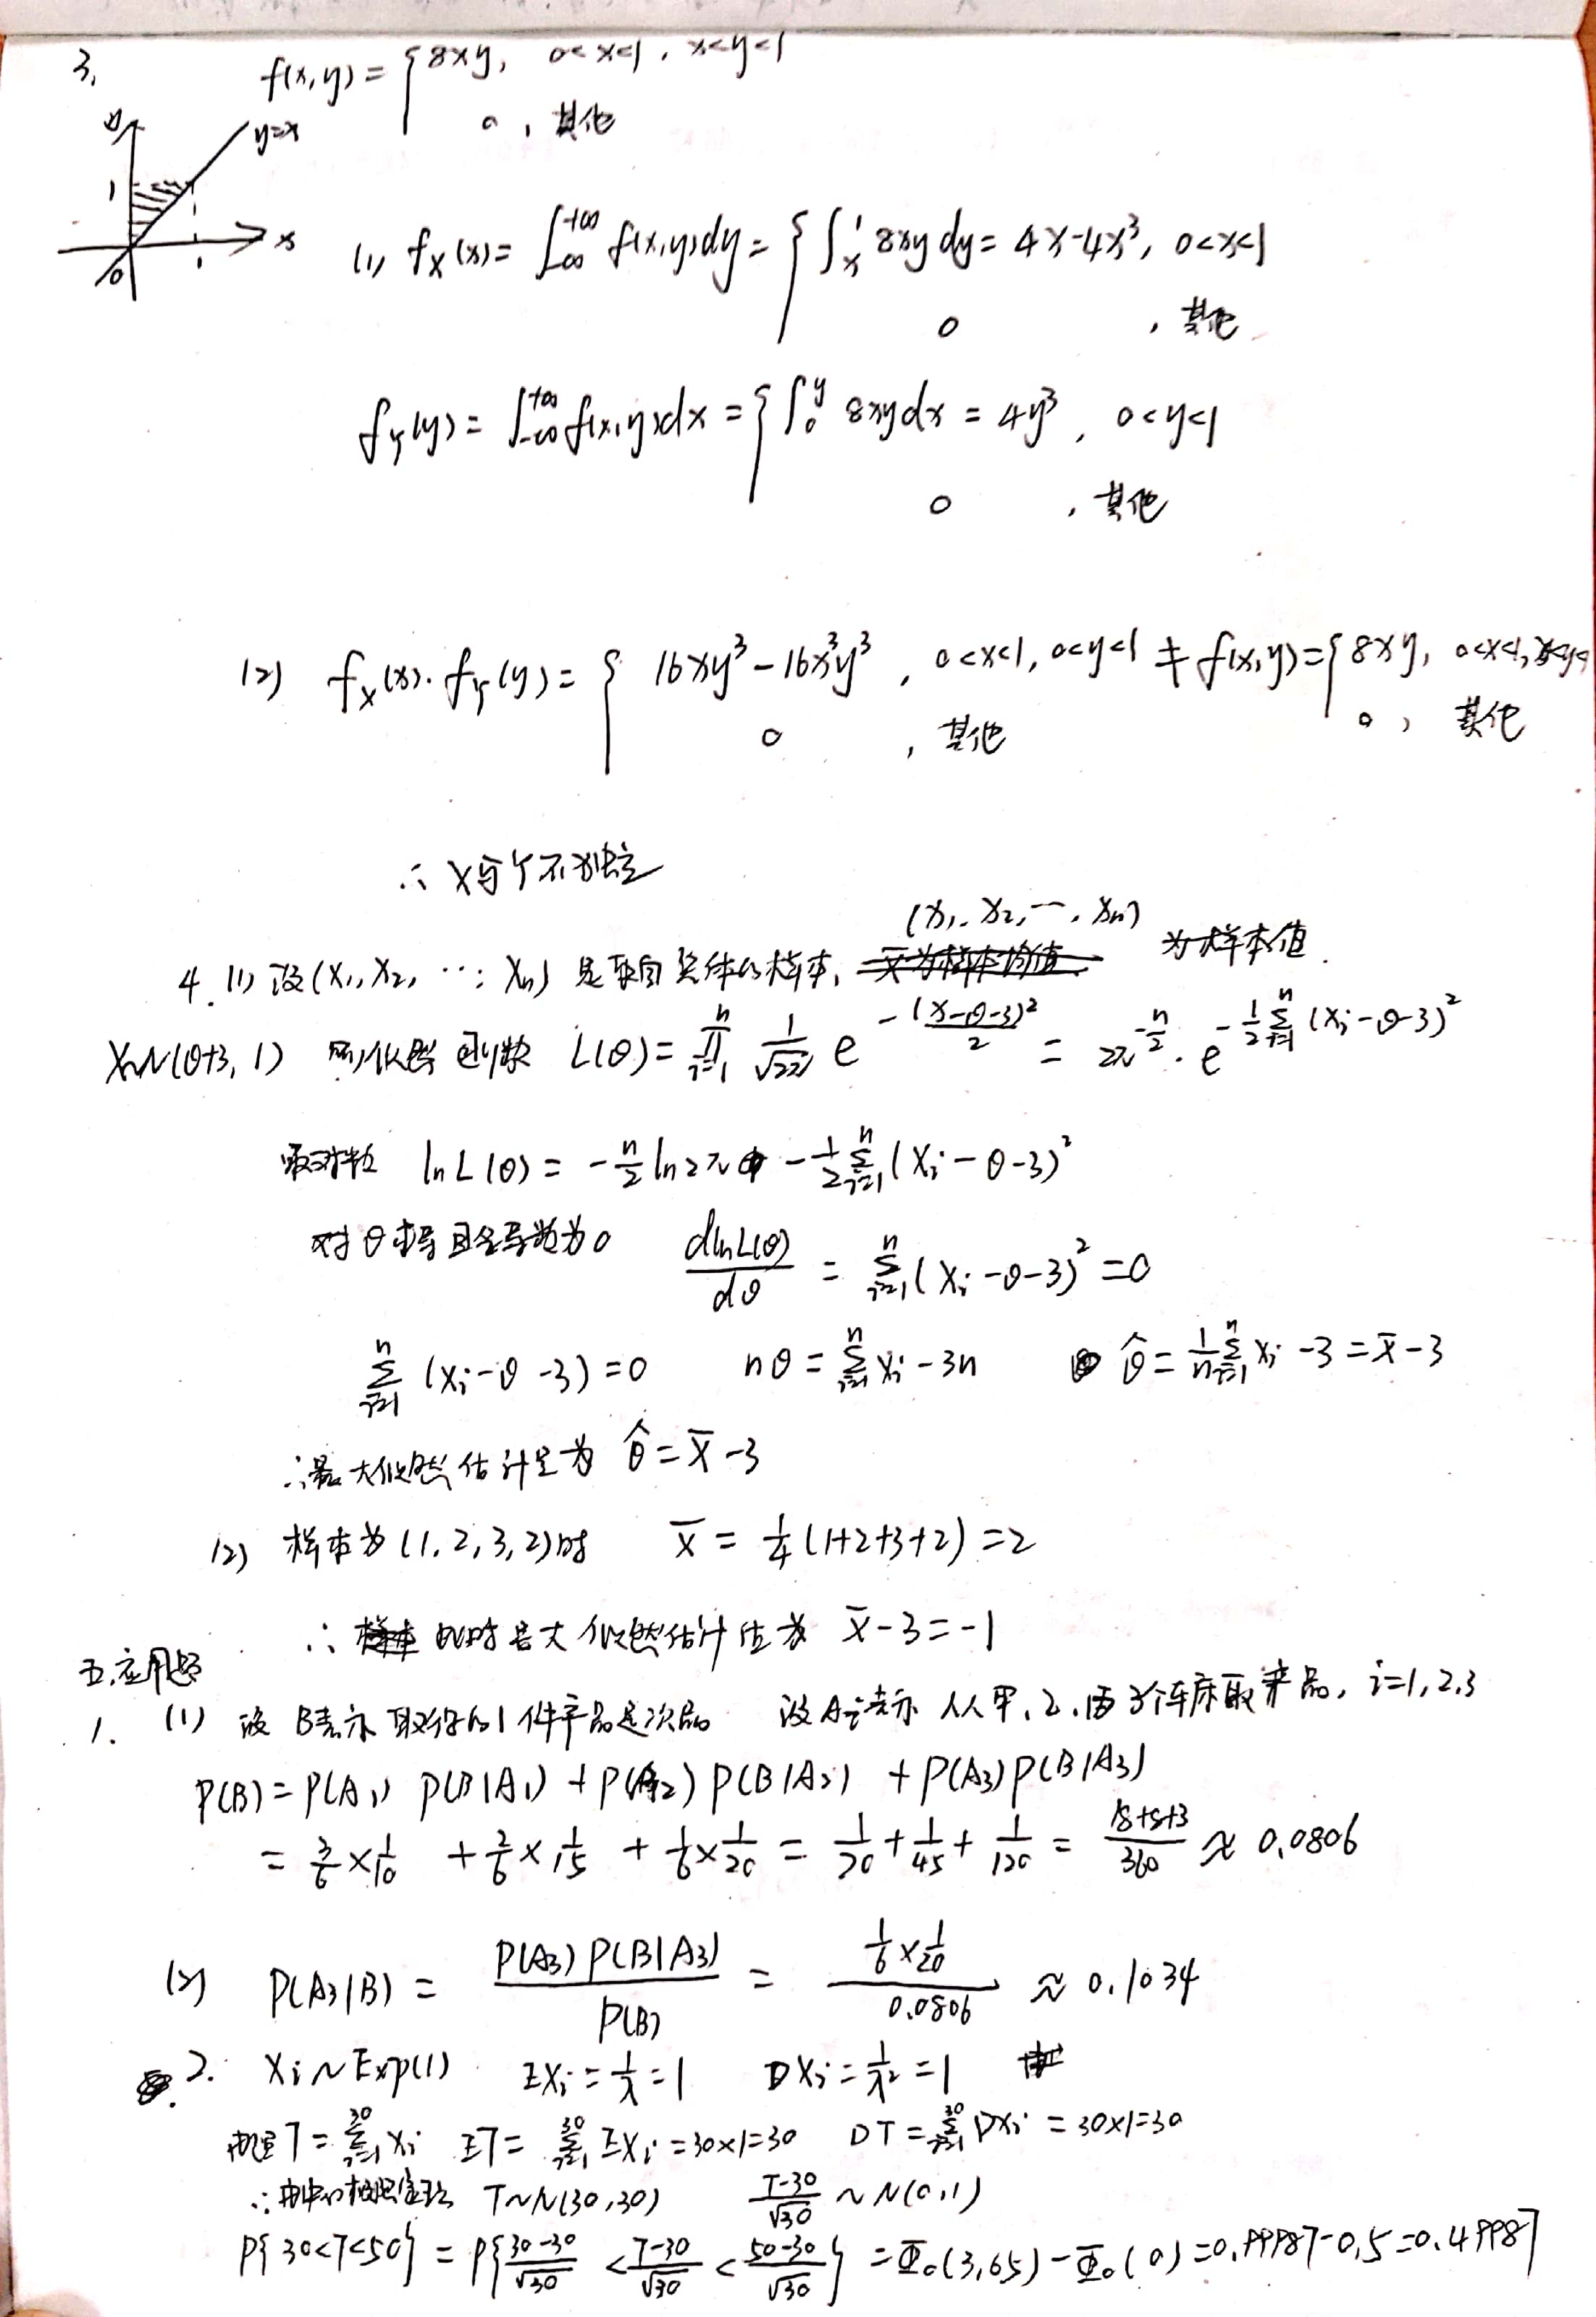 3. f(x,y)={8xy, 0<x<1, x<y<1
0, 其他
y
y=x
1
x
0
1
(1) f_X(x)=∫_{-∞}^{+∞} f(x,y)dy={∫_x^1 8xydy=4x-4x³, 0<x<1
0, 其他
f_Y(y)=∫_{-∞}^{+∞} f(x,y)dx={∫_0^y 8xydx=4y³, 0<y<1
0, 其他
(2) f_X(x)·f_Y(y)={16xy³-16x³y³, 0<x<1, 0<y<1 ≠ f(x,y)={8xy, 0<x<1, x<y<
0, 其他 0, 其他
∴X与Y不独立
(x₁, x₂, …, xₙ)
4. (1) 设(X₁, X₂, …, Xₙ)是取自总体的样本, 为样本值.
X~N(θ+3, 1) 则似然函数 L(θ)=∏_{i=1}^n 1/√2π e^{-(x-θ-3)²/2} = 2π^{-n/2}·e^{-1/2 Σ_{i=1}^n (xᵢ-θ-3)²}
取对数 lnL(θ)=-n/2 ln2π -1/2 Σ_{i=1}^n (xᵢ-θ-3)²
对θ求导且令导数为0 dlnL(θ)/dθ = Σ_{i=1}^n (xᵢ-θ-3)²=0
Σ_{i=1}^n (xᵢ-θ-3)=0 nθ=Σ_{i=1}^n xᵢ-3n θ̂=1/n Σ_{i=1}^n xᵢ-3=x̄-3
∴最大似然估计量为 θ̂=X̄-3
(2) 样本为(1,2,3,2)时 x̄=1/4(1+2+3+2)=2
∴ 此时最大似然估计值为 x̄-3=-1
五.应用题
1. (1) 设B表示取得的1件产品是次品 设Aᵢ表示从甲,乙,丙3个车床取产品, i=1,2,3
P(B)=P(A₁)P(B|A₁)+P(A₂)P(B|A₂)+P(A₃)P(B|A₃)
=3/6×1/10+2/6×1/15+1/6×1/20=1/20+1/45+1/120=(18+8+3)/360≈0.0806
(2) P(A₃|B)=P(A₃)P(B|A₃)/P(B)=(1/6×1/20)/0.0806≈0.1034
2. Xᵢ~Exp(1) EXᵢ=1/λ=1 DXᵢ=1/λ²=1
T=Σ_{i=1}^{30} Xᵢ ET=Σ_{i=1}^{30} EXᵢ=30×1=30 DT=Σ_{i=1}^{30} DXᵢ=30×1=30
∴由中心极限定理 T~N(30,30) (T-30)/√30~N(0,1)
P{30<T<50}=P{(30-30)/√30<(T-30)/√30<(50-30)/√30}=Φ₀(3.65)-Φ₀(0)=0.99987-0.5=0.49987